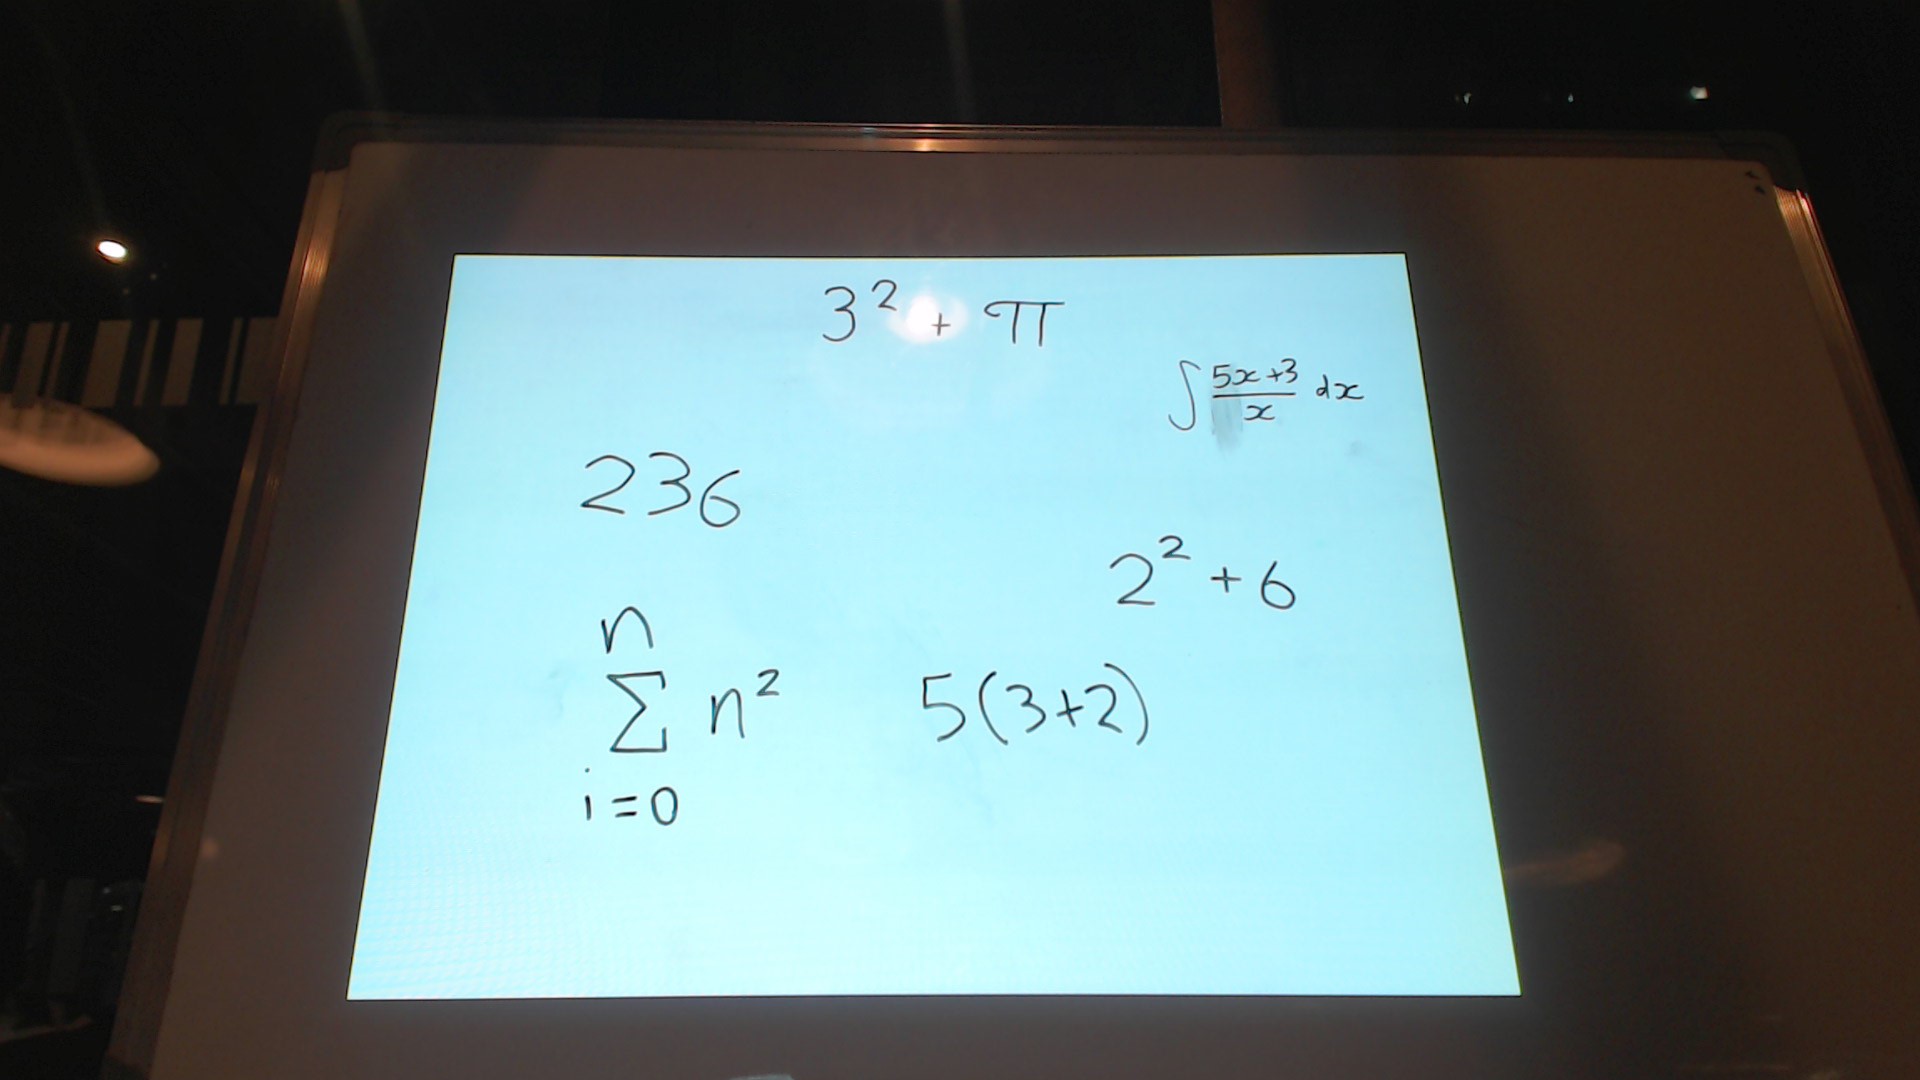 3² + π
∫ (5x+3)/x dx
236
2² + 6
n
∑ n²
i=0
5(3+2)